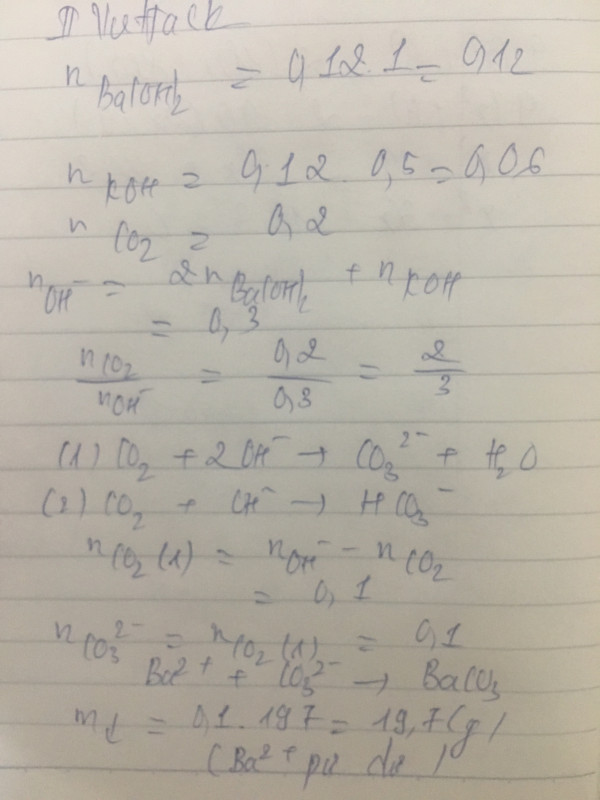 n Ba(OH)2 = 0,12.1 = 0,12
n KOH = 0,12.0,5 = 0,06
n CO2 = 0,2
nOH- = 2n Ba(OH)2 + n KOH
= 0,3
nCO2/nOH- = 0,2/0,3 = 2/3
(1) CO2 + 2OH- → CO3^2- + H2O
(2) CO2 + OH- → HCO3^-
nCO2(1) = nOH- - nCO2
= 0,1
nCO3^2- = nCO2(1) = 0,1
Ba^2+ + CO3^2- → BaCO3
m↓ = 0,1.197 = 19,7(g)
(Ba^2+ pư dư)